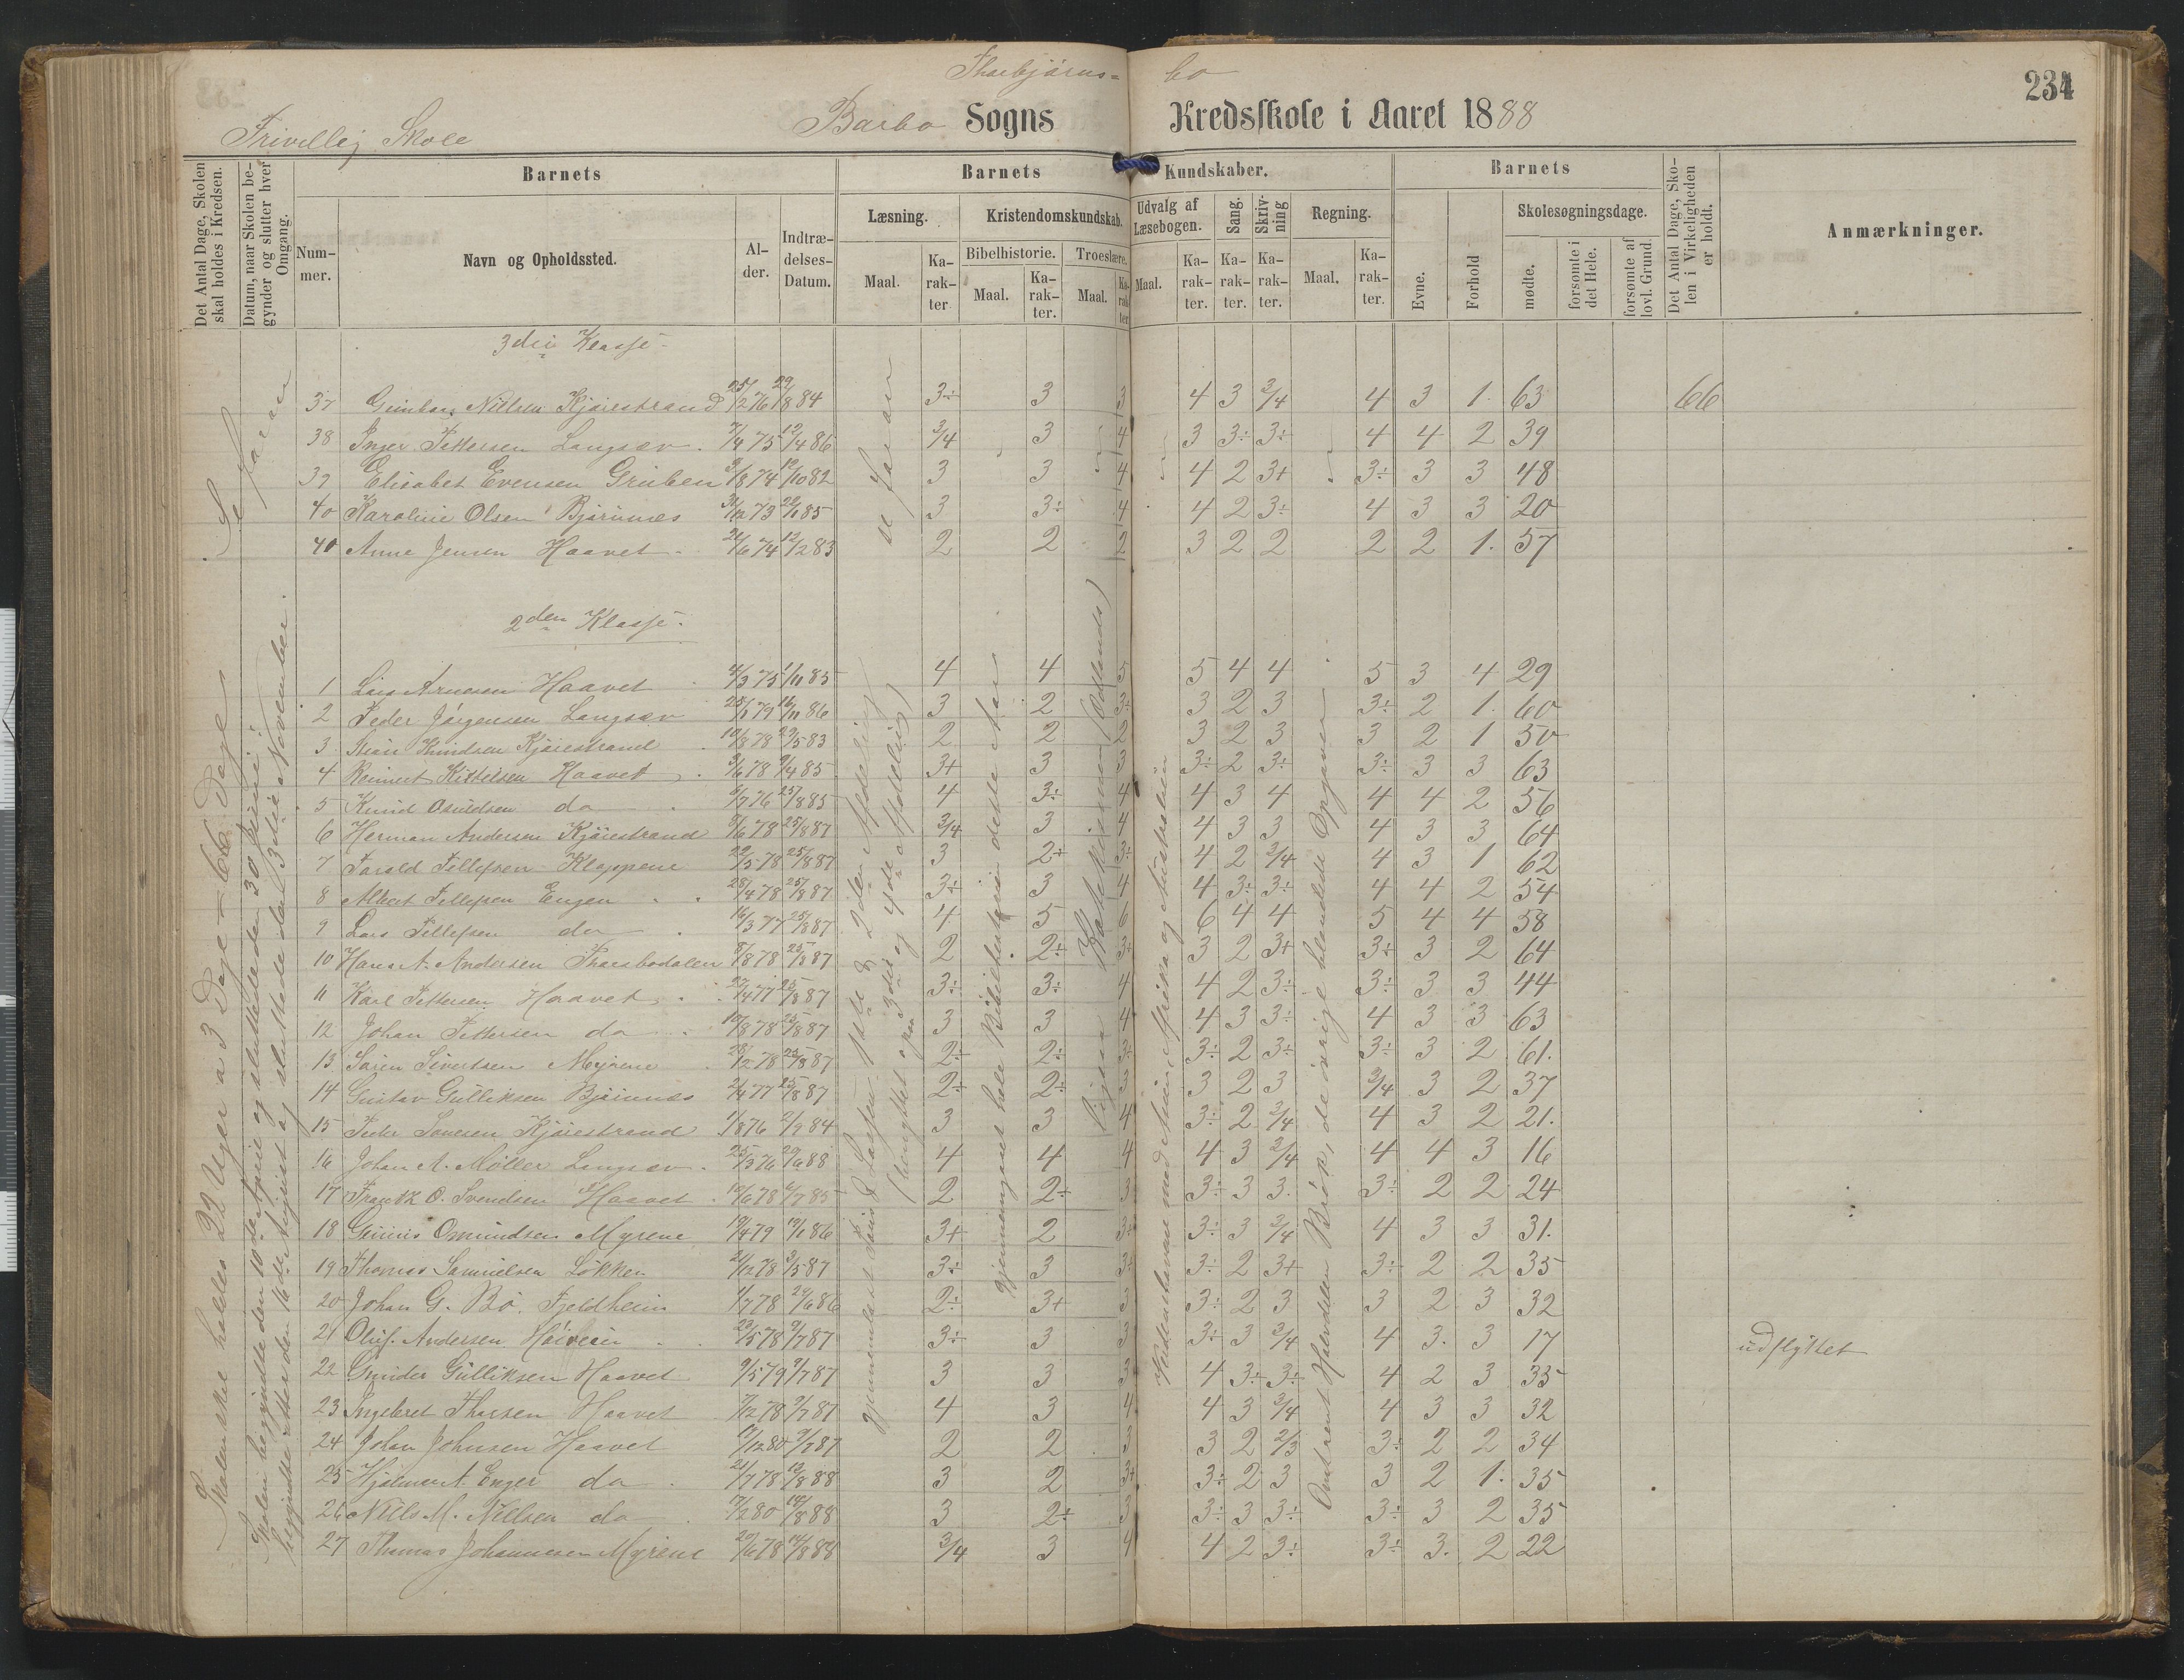 Thorbjørns= bo
234
Frivillig Skole
Barbo Sogns Kredsskole i Aaret 1888
Det Antal Dage, Skolen skal holdes i Kredsen.
Datum, naar Skolen begynder og slutter hver Omgang.
Barnets
Nummer.
Navn og Opholdssted.
Alder.
Indtrædelses-Datum.
Barnets Kundskaber.
Læsning.
Maal.
Karakter
Kristendomskundskab.
Bibelhistorie.
Maal.
Karakter.
Troeslære.
Maal.
Karakter
Udvalg af Læsebogen.
Maal.
Karakter.
Sang.
Karakter.
Skrivning
Karakter.
Regning.
Maal.
Karakter.
Barnets
Evne.
Forhold
Skolesøgningsdage.
mødte.
forsømte i det Hele.
forsømte af lovl. Grund.
Det Antal Dage, Skolen i Virkeligheden er holdt.
Anmærkninger.
Se foran
3die Klasse
37 Nielsen Kjøiestrand 25/2 76 29/8 84 3÷ 3 3 4 3 3/4 4 3 1. 63 66
38 Inger Pettersen Langsæv 7/4 75 12/4 86 3/4 3 4 3 3÷ 3÷ 4 4 2 39
39 Elisabet Evensen Gruben 9/8 74 12/10 82 3 3 4 4 2 3+ 3÷ 3 3 48
40 Karoline Olsen Bjørnnes 31/12 73 3 3÷ 4 4 2 3÷ 4 3 3 20
Anne Jensen Haavet 21/6 74 12/2 83 2 2 2 3 2 2 2 2 1. 57
Se foran
2den Klasse
Skolen skal holdes 22 Uger a 3 Dage = 66 Dage
Skolen begyndte den 10de April og sluttede den 30 Juni;
begyndte atter den 16de August og sluttede den 3die November.
1 Lars Arnesen Haavet 4/3 75 1/11 85 4 4 5 5 4 4 5 3 4 29
2 Peder Jørgensen Langsæv 3 2 3÷ 3 2 3 3÷ 2 1. 60
3 Knudsen Kjøiestrand 10/8 78 29/5 83 2 2 2 3 2 3 3 2 1 50
4 Reinert Kittelsen Haavet 9/4 85 3+ 3 3 3÷ 2 3÷ 3÷ 3 3 63
5 Knud Osuldsen do 6/7 76 25/8 85 4 3÷ 4 4 3 4 4 4 2 56
6 Herman Andersen Kjøiestrand 8/6 78 25/8 87 3/4 3 4 4 3 3 4 3 3 64
7 Tarald Tellefsen Kloppene 22/5 78 25/8 87 3 2+ 3÷ 4 2 3/4 4 3 1 62
8 Albert Tellefsen Engen 28/4 78 25/8 87 3÷ 3 4 4 3÷ 3÷ 4 4 2 54
9 Lars Tellefsen do 16/3 77 25/8 87 4 5 6 6 4 4 5 4 4 58
10 Hans A. Andersen Thorsbodalen 8/8 78 25/8 87 2 2÷ 3+ 3 2 3+ 3÷ 3 2 64
11 Karl Pettersen Haavet 27/4 77 25/8 87 3÷ 3÷ 4 4 2 3÷ 3÷ 3 3 44
12 Johan Pettersen do 10/8 78 25/8 87 3 3 4 4 3 3÷ 4 3 3 63
13 Søren Sivertsen Myrene 28/12 78 25/8 87 2÷ 2÷ 3÷ 3÷ 2 3÷ 3÷ 3 2 61.
14 Gustav Gulliksen Bjørnnes 2/4 77 25/8 87 2÷ 2÷ 3 3 2 3 3/4 3 2 37
15 Peder Kjøiestrand 1/8 76 2/9 84 3 3 4 3÷ 2 3/4 4 3 2 21.
16 Johan A. Møller Langsæv 25/3 76 29/6 88 4 4 4 4 3 3/4 4 4 3 16
17 Frank O. Svendsen Haavet 10/6 78 6/7 85 2 2÷ 3 3÷ 3 3. 3÷ 2 2 24
18 Omundsen Myrene 19/4 79 19/1 86 3+ 2 3÷ 3÷ 3 3/4 4 3 3 31.
19 Thomas Samuelsen Løkken 21/12 78 3/5 87 3÷ 3 3÷ 3÷ 2 3+ 3÷ 2 2 35
20 Johan G. Bø. Fjeldheim 1/7 78 29/6 86 2÷ 3+ 3 3÷ 2 3 3 2 3 32
21 Oluf. Andersen 23/5 78 9/7 87 3÷ 3 3 3÷ 3 3/4 4 3. 3 17 udflyttet
22 Gunder Gulliksen Haavet 9/5 79 9/7 87 3 3 3 4 3÷ 3÷ 4 2 3 35
23 Ingebret Thorsen Haavet 7/12 78 9/7 87 4 3 4 4 3 3/4 4 3 3 32
24 Johan Johnsen Haavet 9/7 87 2 2 3 3 2 2/3 3÷ 2 2 34
25 Hjalmar A. Enger do 21/7 78 13/8 88 3 2 3+ 3÷ 2 3 3 2 1. 35
26 Niels M. Nielsen do 7/2 80 14/8 88 3 2÷ 3 3÷ 3 3÷ 3÷ 3 2 35
27 Thomas Johannesen Myrene 20/6 78 14/8 88 3/4 3 4 4 2 3÷ 3÷ 3. 2 22
gjennemlæst Jens & Lassen 1ste & 2den Afdeling
(benyttet ogsaa 3die og 4de Afdeling)
gjennemgaaet hele Bibelhistorien dette Aar
Katekismen
Verdenshavene med Asien, Afrika og Australien
Omtrent Halvdelen Brøk, de øvrige blandede Opgaver.